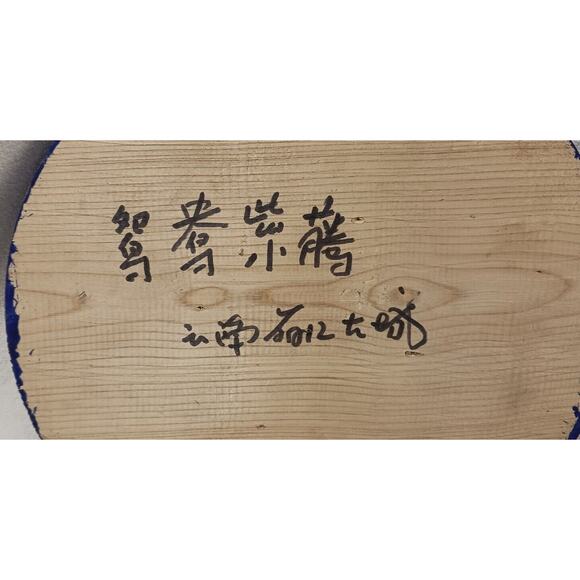 鸳鸯紫藤
云南丽江大城